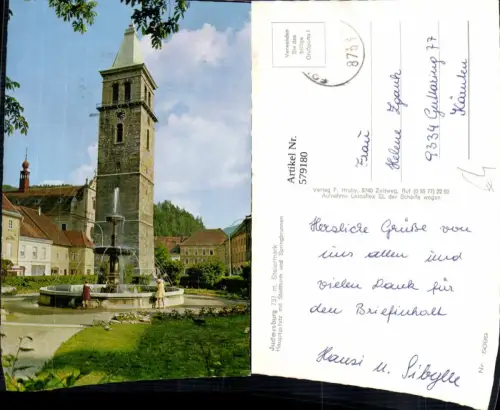 Verwenden
Sie die
Postleitzahl
8731
Frau
Helene Zpank
9334 Guttaring 77
Kärnten
Artikel Nr.
579180
Verlag F. Hruby, 8740 Zeltweg, Ruf (0 35 77) 22 60
Judenburg 737 m, Steiermark
Hauptplatz mit Stadtturm und Springbrunnen
Herzliche Grüße von
uns allen und
vielen Dank für
den Briefinhalt
Hansi u. Sibylle
Nr.